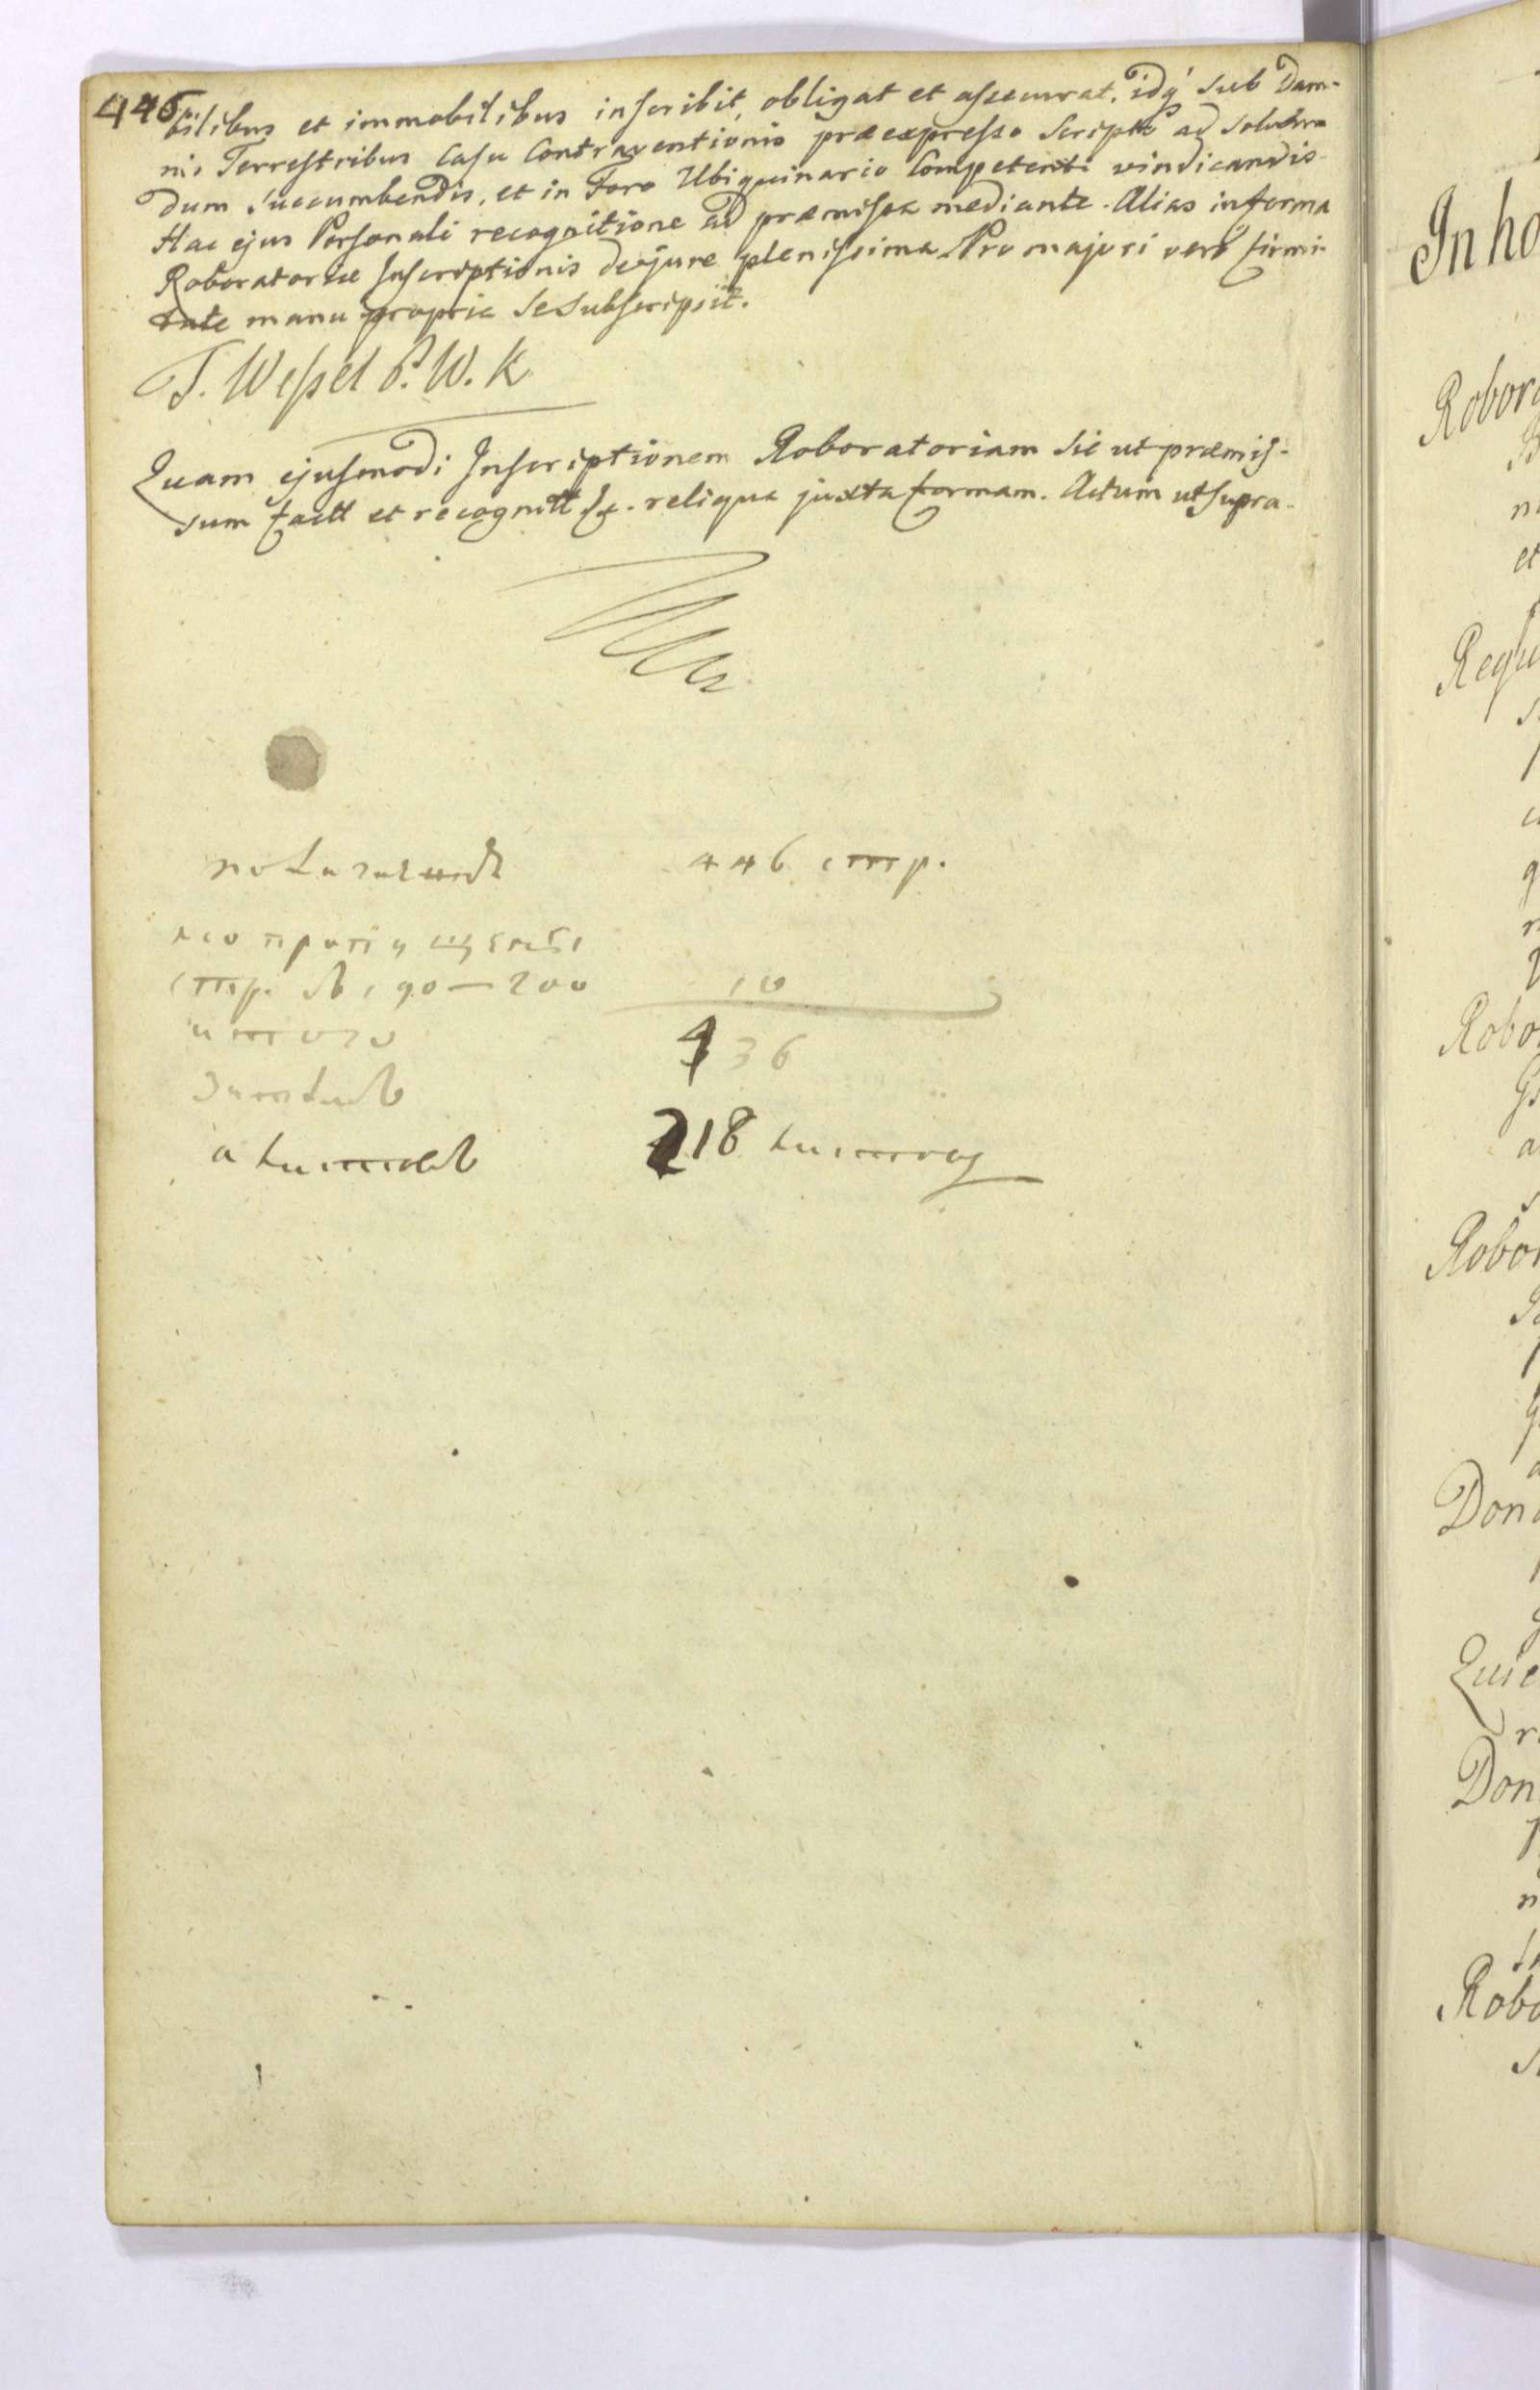 446
bilibus et immobilibus inscribit, obligat et assecurat, idq̀ sub Dam-
nis Terrestribus Casu Contraventionis præexpresso Scriptte ad Solven
dum succumbendis, et in Foro Ubiquinario Competenti vindicandis
Hac ejus Personali recognitione ad præmissa mediante. Alias in forma
Roboratoriæ Inscriptionis de jure plenissima. Pro majori vero firmi-
tate manu propria se subscripsit.
T. Wessel P. W. K.
Quam ejusmodi Inscriptionem Roboratoriam sic ut præmis-
sum factt et recognitt &. reliqua juxta formam. Actum ut supra.
446 стр.
стр. 190 — 200 10
итого 436
а листовъ 218 листовъ
In ho
Robor
et
Requ
Robo
Robor
Dona
Quie
Don
Robo